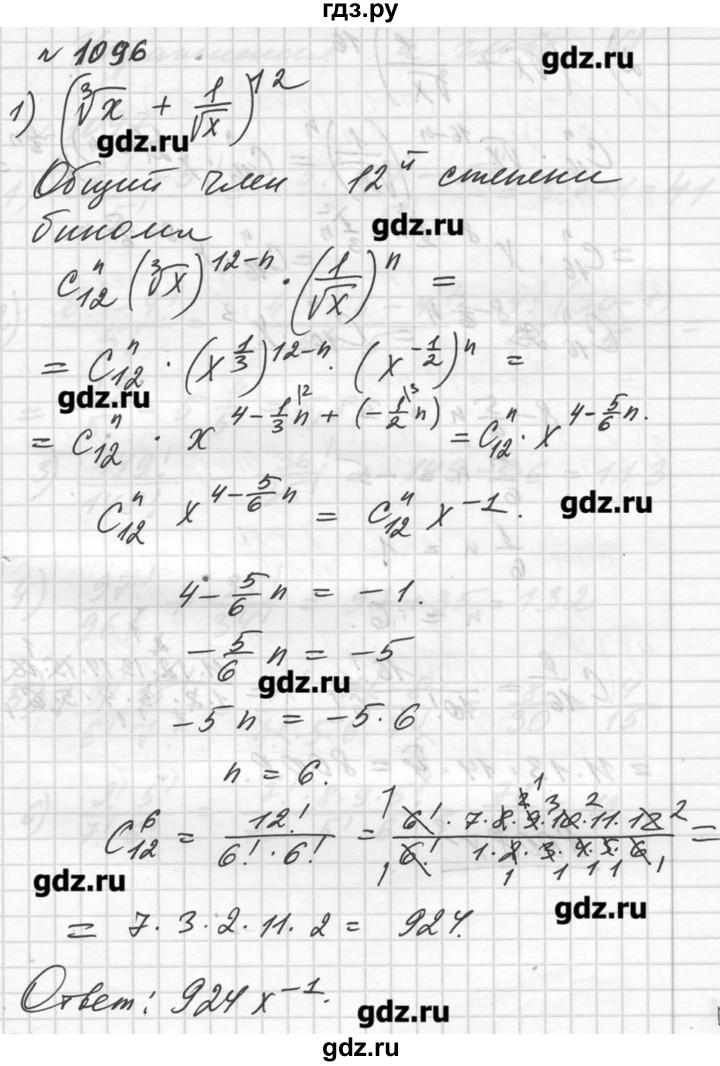 гдз.ру
№ 1096
gdz.ru
1) (∛x + 1/√x)^12
gdz.ru
Общий член 12й степени
бинома
gdz.ru
C_12^n (∛x)^(12-n) · (1/√x)^n =
= C_12^n · (x^(1/3))^(12-n) · (x^(-1/2))^n =
gdz.ru
= C_12^n · x^(4 - 1/3 n + (-1/2 n)) = C_12^n · x^(4 - 5/6 n).
C_12^n x^(4 - 5/6 n) = C_12^n x^(-1).
gdz.ru
4 - 5/6 n = -1.
- 5/6 n = -5
gdz.ru
-5n = -5·6
n = 6.
C_12^6 = 12!/(6!·6!) = (6!·7·8·9·10·11·12)/(6! 1·2·3·4·5·6) =
gdz.ru
= 7·3·2·11·2 = 924.
gdz.ru
Ответ: 924 x^(-1).
gdz.ru
gdz.ru